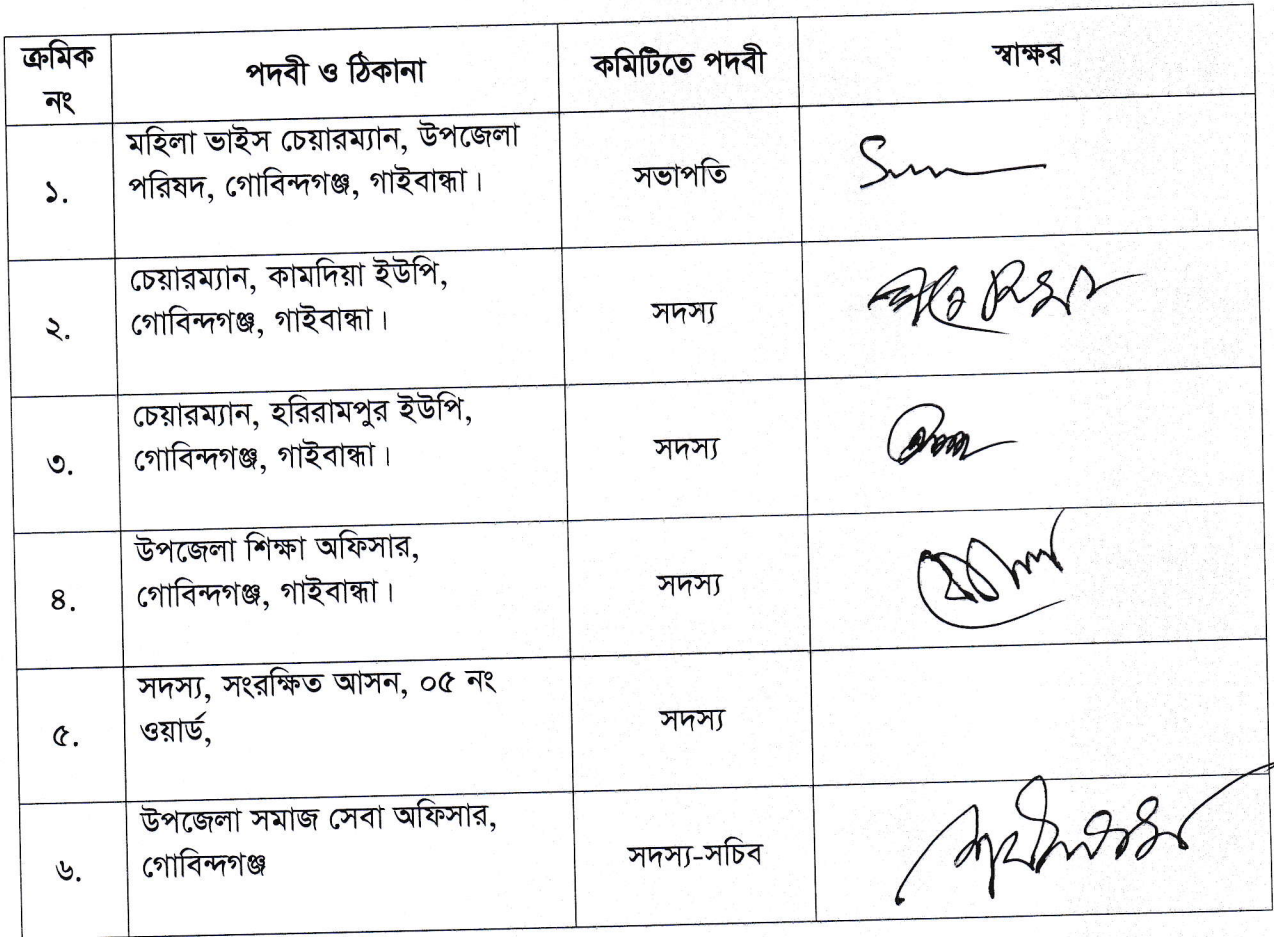 ক্রমিক
নং
পদবী ও ঠিকানা
কমিটিতে পদবী
স্বাক্ষর
১.
মহিলা ভাইস চেয়ারম্যান, উপজেলা
পরিষদ, গোবিন্দগঞ্জ, গাইবান্ধা।
সভাপতি
২.
চেয়ারম্যান, কামদিয়া ইউপি,
গোবিন্দগঞ্জ, গাইবান্ধা।
সদস্য
৩.
চেয়ারম্যান, হরিরামপুর ইউপি,
গোবিন্দগঞ্জ, গাইবান্ধা।
সদস্য
৪.
উপজেলা শিক্ষা অফিসার,
গোবিন্দগঞ্জ, গাইবান্ধা।
সদস্য
৫.
সদস্য, সংরক্ষিত আসন, ০৫ নং
ওয়ার্ড,
সদস্য
৬.
উপজেলা সমাজ সেবা অফিসার,
গোবিন্দগঞ্জ
সদস্য-সচিব